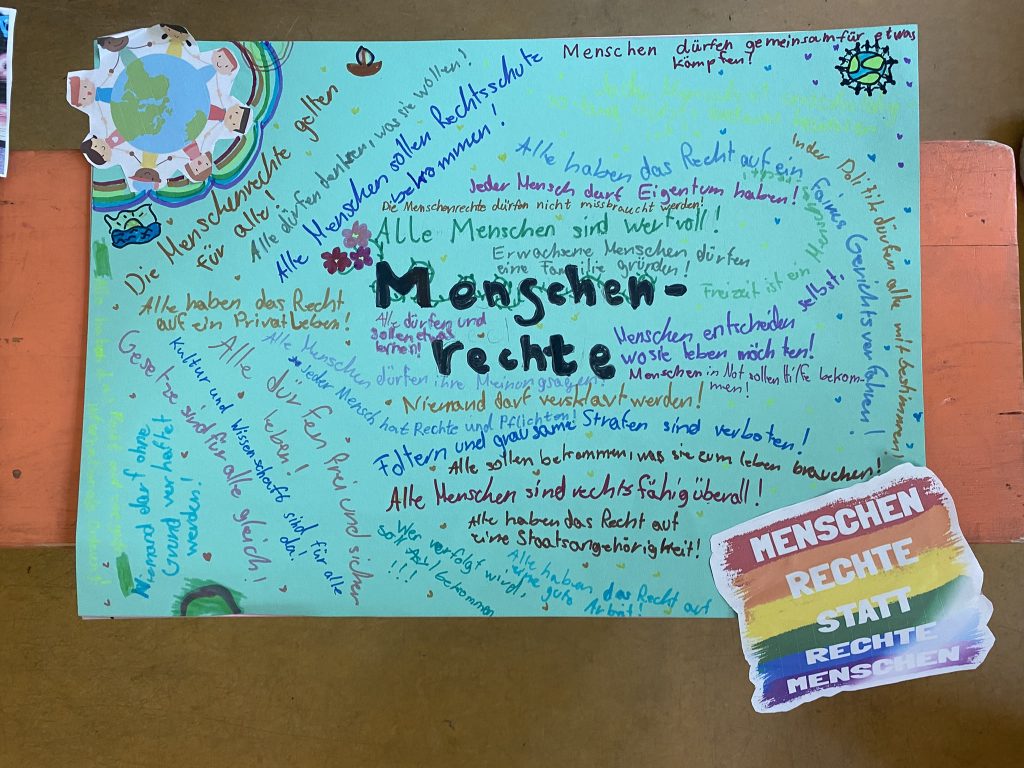 Menschen dürfen gemeinsam für etwas
kämpfen!
Die Menschenrechte gelten
für alle!
Alle dürfen denken, was sie wollen!
Alle Menschen sollen Rechtsschutz
bekommen!
Alle haben das Recht auf ein faires Gerichtsverfahren!
In der Politik dürfen alle mitbestimmen!
Jeder Mensch darf Eigentum haben!
Die Menschenrechte dürfen nicht missbraucht werden!
Alle Menschen sind wertvoll!
Erwachsene Menschen dürfen
eine Familie gründen!
Freizeit ist ein
Menschen-
rechte
Alle haben das Recht
auf ein Privatleben!
Alle dürfen und
sollen etwas
lernen!
Menschen entscheiden selbst,
wo sie leben möchten!
Menschen in Not sollen Hilfe bekom-
men!
Alle Menschen dürfen ihre Meinung sagen!
Niemand darf versklavt werden!
Jeder Mensch hat Rechte und Pflichten!
Foltern und grausame Strafen sind verboten!
Alle sollen bekommen, was sie zum leben brauchen!
Alle Menschen sind rechtsfähig überall!
Alle haben das Recht auf
eine Staatsangehörigkeit!
Alle dürfen frei und sicher
leben!
Kultur und Wissenschaft sind für alle
da!
Gesetze sind für alle gleich!
Niemand darf ohne
Grund verhaftet
werden!
Wer verfolgt wird,
soll Asyl bekommen
!!!
Alle haben das Recht auf
eine gute
Arbeit!
MENSCHEN
RECHTE
STATT
RECHTE
MENSCHEN